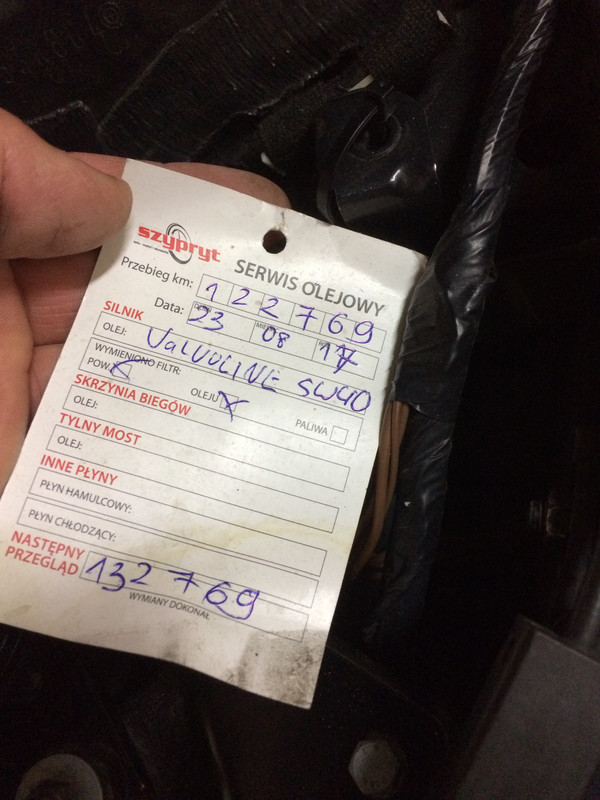 szypryt
SERWIS OLEJOWY
Przebieg km: 122769
Data: 23 08 17
SILNIK
OLEJ: VaLVOLINE 5W40
WYMIENIONO FILTR:
POW. OLEJU X PALIWA
SKRZYNIA BIEGÓW
OLEJ:
TYLNY MOST
OLEJ:
INNE PŁYNY
PŁYN HAMULCOWY:
PŁYN CHŁODZĄCY:
NASTĘPNY
PRZEGLĄD 132769
WYMIANY DOKONAŁ